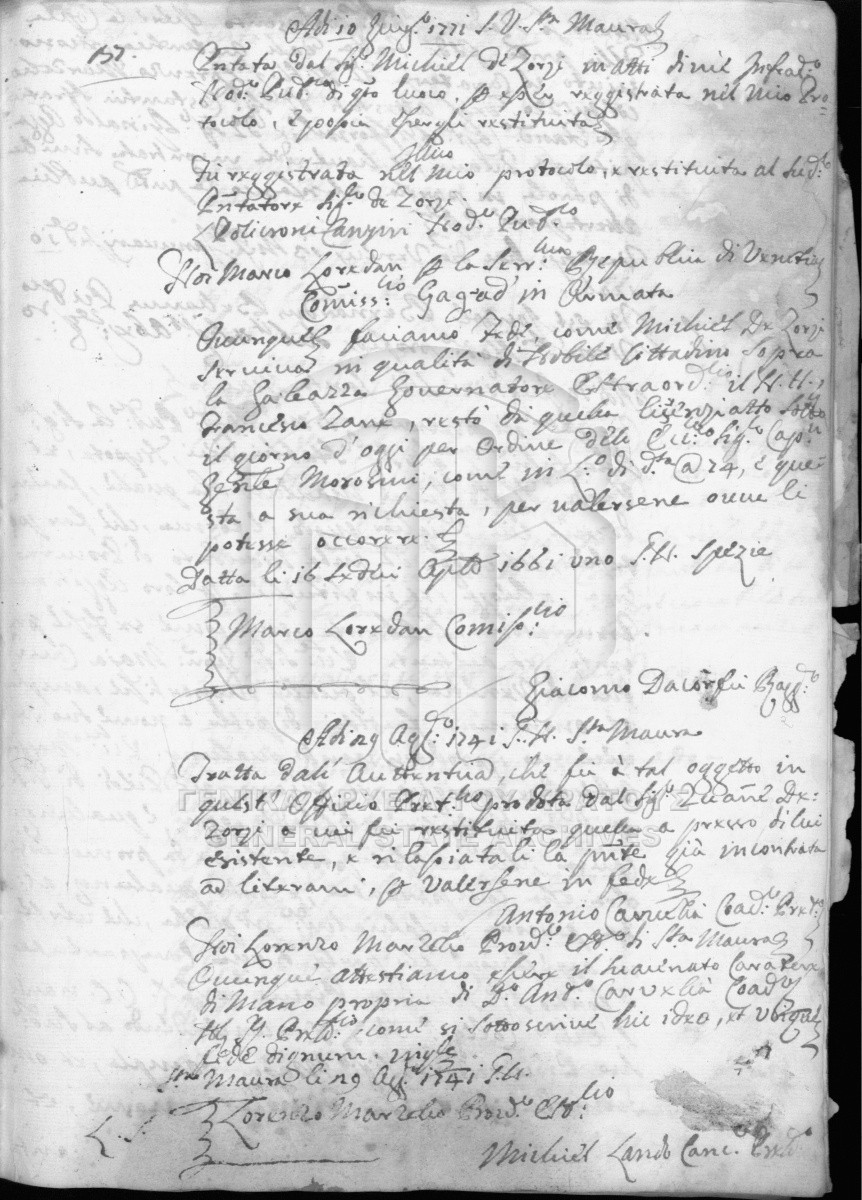 Adi 10 Giug.o 1771 S.V. S.ta Maura
137.
Pntata dal Sig.r Michiel de Zorzi in atti di mè Infrad.o
Nod.o Pub.co di q.to luoco, p esser reggistrata nel mio Pro=
tocolo, e poscia essergli restituita
Fù reggistrata nel mio protocolo, e restituita al sud.o
Pntatore Sig.r de Zorzi.
Policroni Nod.o Pub.co
Noi Marco Loredan p la Ser.ma Republica di Venetia
Comiss.rio in Armata
Ovunque facciamo Fede, come Michiel De Zorzi
serviva in qualità di Nobile Cittadino sopra
la Galeazza Governatore Estraord.rio il N. H.
Francesco Zane, restò da quella licenziatto sotto
il giorno d'oggi per Ordine dell' Ecc.mo Sig.r Cap.n
Gen.le Morosini, come in L.o di d.ta @ 24, e que=
sta a sua richiesta, per valersene ove li
potesse occorrere.
Datta li 16 1661 S.N. Spezie
Marco Loredan Comiss.rio
Giacomo Dacorfù Ragg.to
Adi 29 Ag.to 1741 S.N. S.ta Maura
Tratta dall' Auttentica, che fù à tal oggetto in
quest' Officio Pret.rio prodota dal Sig.r Zuane De:
ΓΕΝΙΚΑ ΑΡΧΕΙΑ ΤΟΥ ΚΡΑΤΟΥΣ
Zorzi a cui fù restituita quella apresso di lui
GENERAL STATE ARCHIVES
esistente, e rilasciatali la pnte già incontrata
ad literam, p valersene in fede
Antonio Carvelià Coad.r Pret.o
Noi Lorenzo Marcelo Prov.r Estr.o di S.ta Maura
Ovunque attestiamo essere il Caratere
di Mano propria di D.o Ant.o Carvelià Coad.r
come si sottoscrive hic ideo, et ubique
fede dignum.
S.ta Maura li 29 Ag.to 1741 S.N.
Lorenzo Marcelo Prov.r Estr.rio
L. S.
Michiel Lando Canc.r Pret.o